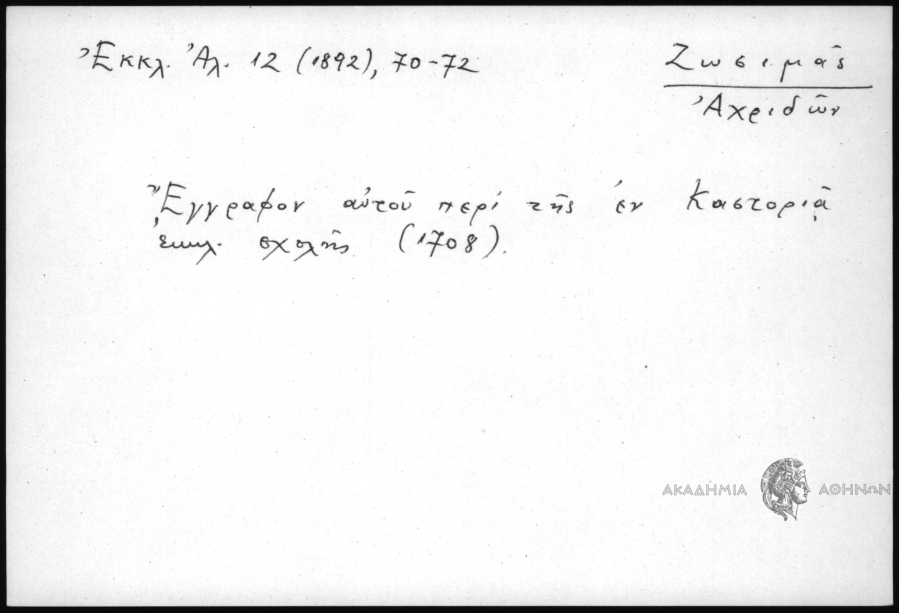 Ἐκκλ. Ἀλ. 12 (1892), 70-72
Ζωσιμᾶς
Ἀχριδῶν
Ἔγγραφον αὐτοῦ περί τῆς ἐν Καστοριᾷ
ἐκκλ. σχολῆς (1708).
ΑΚΑΔΗΜΙΑ ΑΘΗΝΩΝ